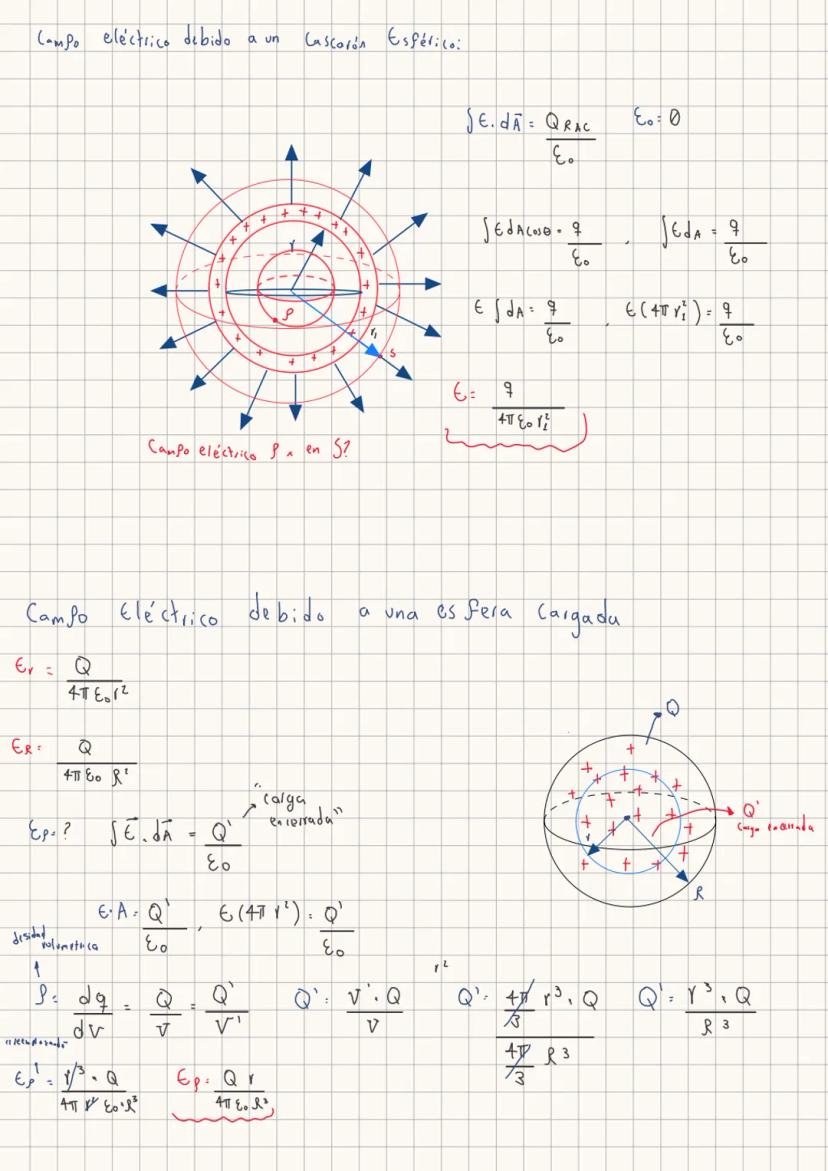 Campo eléctrico debido a un Cascarón Esférico:
∫E.dA⃗ = QRAC/ε₀    ε₀ = 0
∫EdAcosθ = q/ε₀ , ∫EdA = q/ε₀
E∫dA = q/ε₀ , E(4πr₁²) = q/ε₀
E = q/4πε₀r₁²
r
ρ
r₁
s
Campo eléctrico P ^ en S?
Campo Eléctrico debido a una esfera Cargada
Er = Q/4πε₀r²
ER = Q/4πε₀R²
Ep = ? ∫E⃗.dA⃗ = Q'/ε₀
"carga
encerrada"
Q
Q'
Carga encerrada
r
R
E·A = Q'/ε₀ , E(4πr²) = Q'/ε₀
desidad
volumetrica
r²
ρ = dq/dV = Q/V = Q'/V'    Q' = V'·Q/V    Q' = 4π/3 r³·Q / 4π/3 R³    Q' = r³·Q/R³
Ep' = r³·Q/4πr²ε₀·R³    Ep = Q r/4πε₀R³